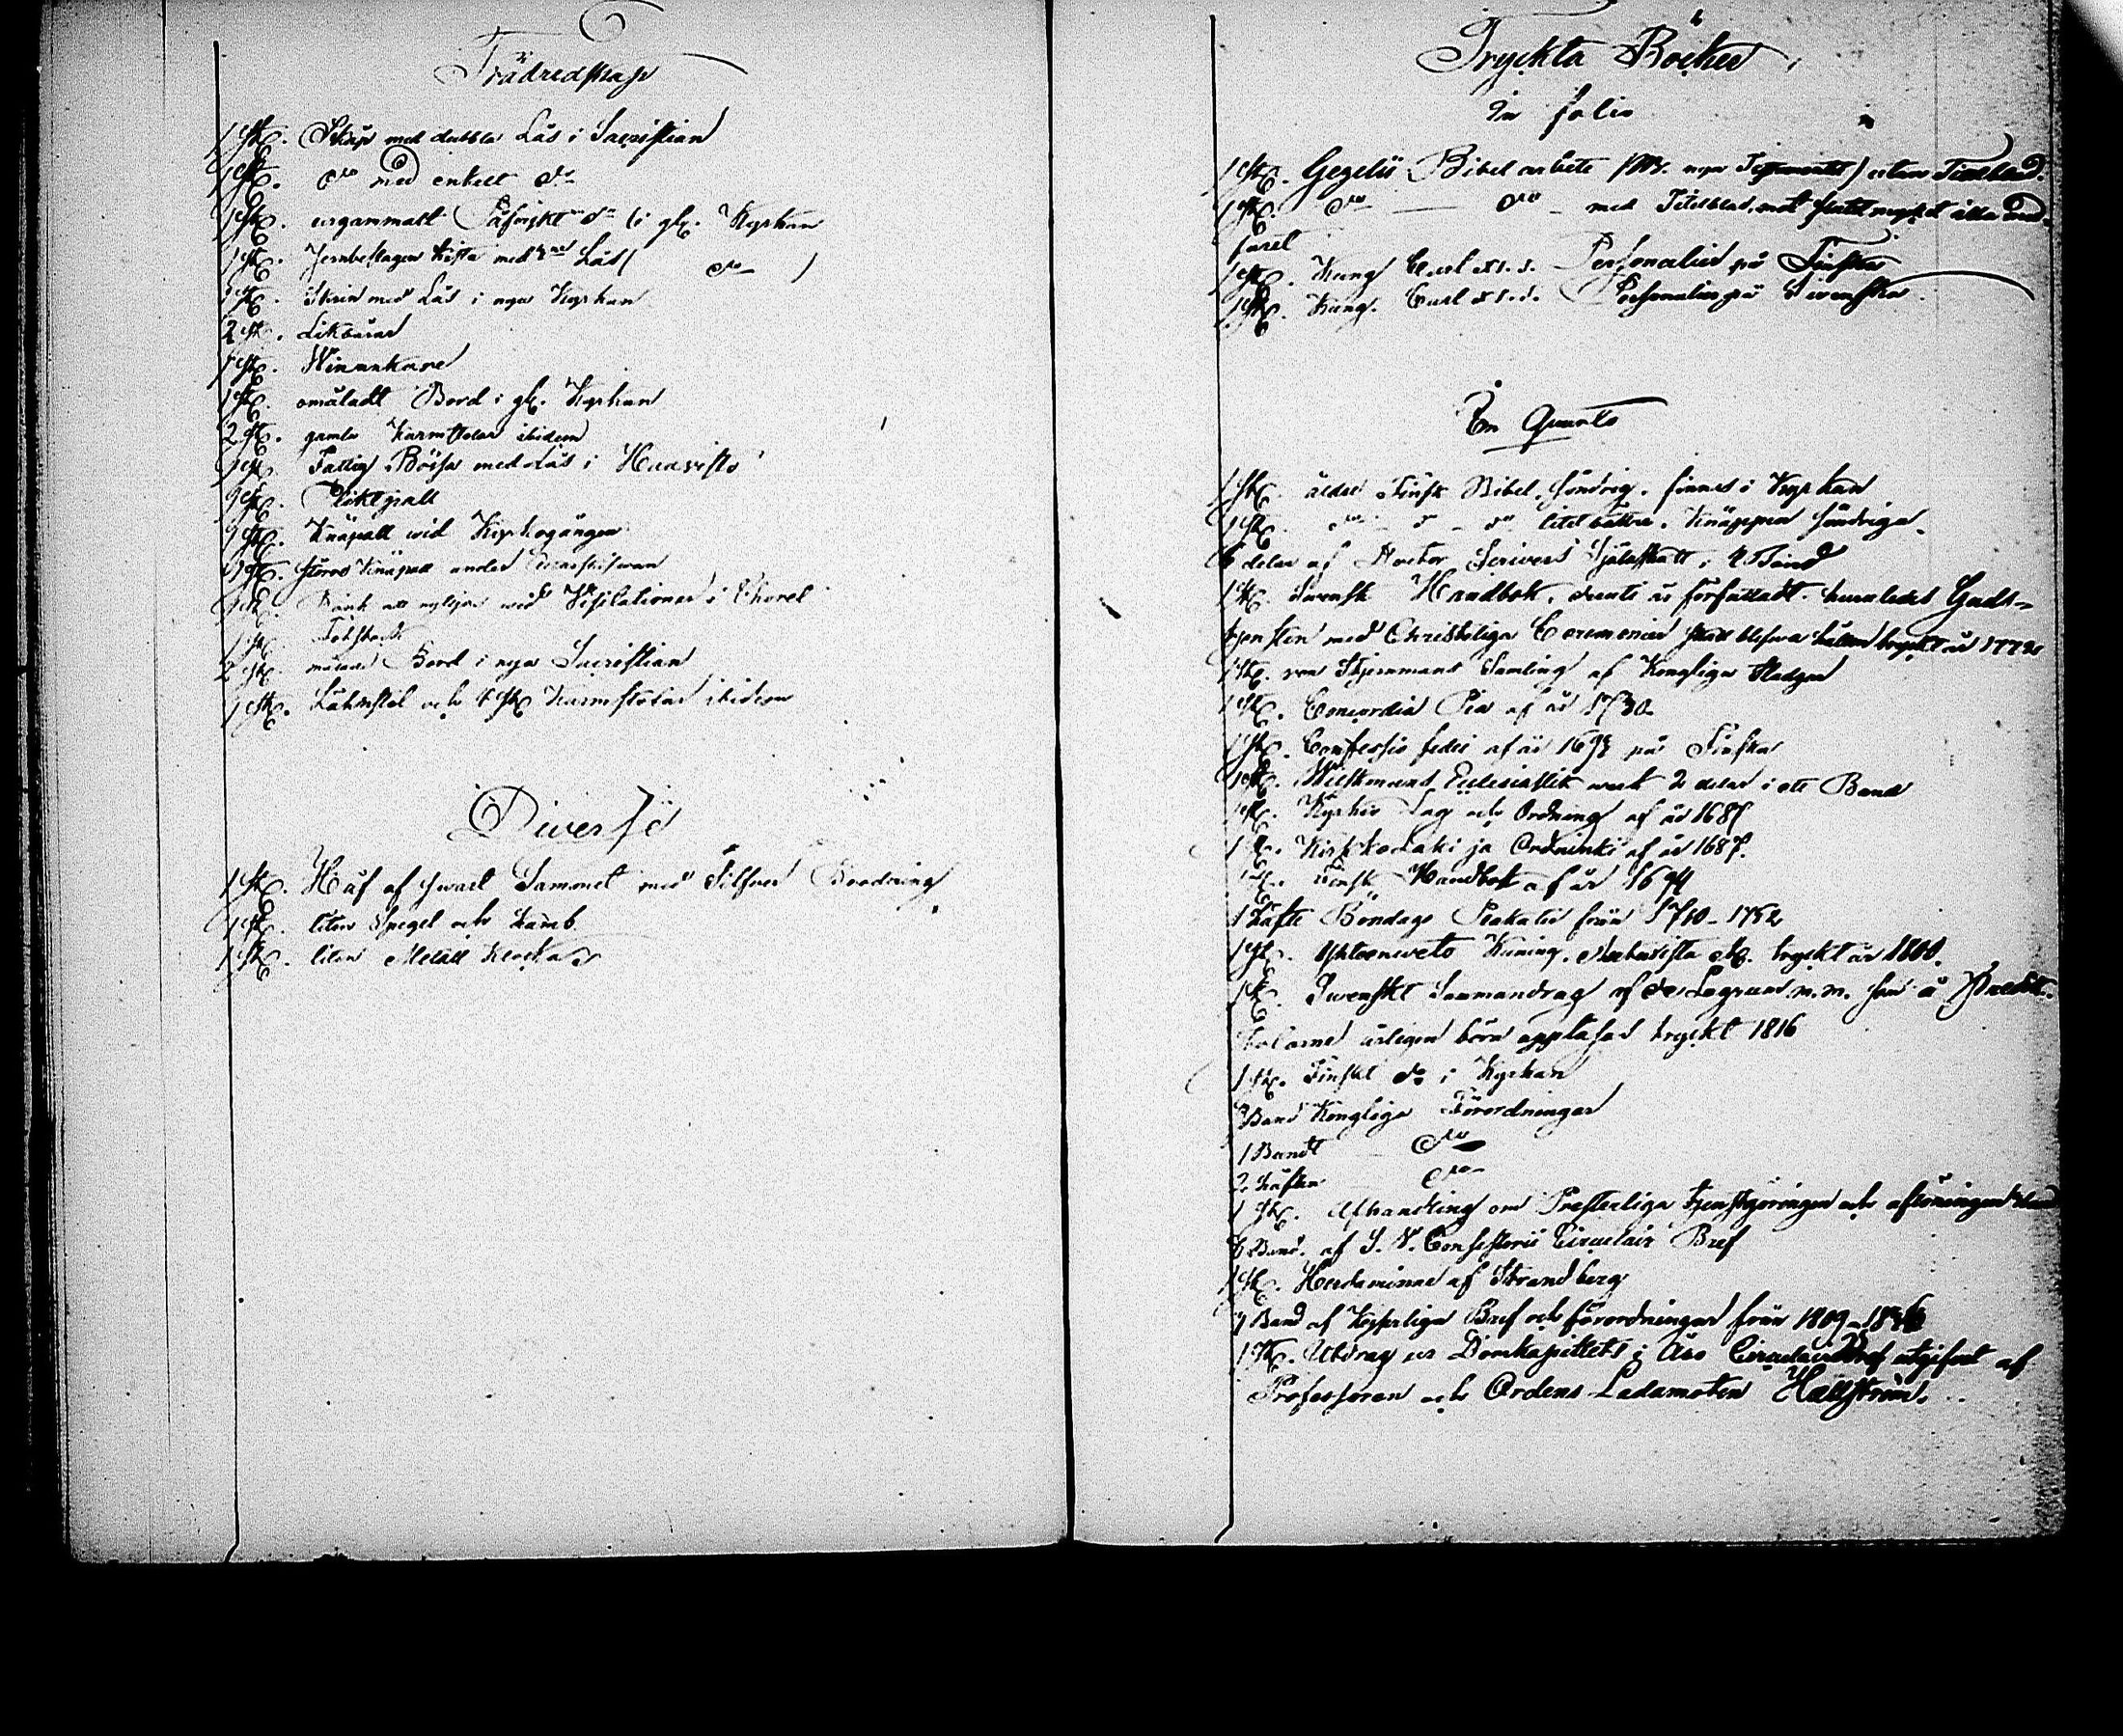 Trädredskap
1 St. Skåp med dubbla Lås i Sacristian
1 St. Dto med enkelt Do
1 St. urgammalt Do (i gl. Kyrkan
1 St. Jernbeslagen Kista med Lås ( Dto )
1 St. Skrin med Lås i nya Kyrkan
2 St. Likbårar
1 St. Winankare
1 St. omåladt Bord i gl. Kyrkan
2 St. gamla Karmstolar ibidem
1 St. Fattig Bössa med Lås i Haavisto
1 St. Pliktpall
1 St. Knäpall wid Kyrkogången
1 St. större Knäpall under
1 St. Bänk att nyttjas wid Visitationer i Choret
1 St. Fotsback
2 St. målade Bord i nya Sacristian
1 St. Länstol och 4 St. Karmstolar ibidem
Diverse
1 St. Håf af swart Sammet med Silfver Brodering
1 St. liten Spegel och Kamb
1 St. liten Metall Klocka
Tryckta Böcker
in folio
1 St. Gezelii Bibel arbete (nya Testamentet) utan Titelblad.
1 St. Dto Dto med Titelblad, mot slutet mycket illa med-
faret
1 St. Kung Carl XI.s. Personalier på Finska
1 St. Kung. Carl XI.s. Personalier på Swenska.
In Quarto
1 St. äldre Finsk Bibel, söndrig, finnes i Kyrkan
1 St. Do D Do litet bättre. Knäppen söndriga.
delar af Doctor Scrivers Själaskatt i 4 Band
1 St. Swensk Handbok, deruti är författadt huruledes Guds-
tjensten med Christeliga Ceremonier skall blifwa hållen tryckt år 1772
1 St. von Stjernmans Samling af Kongliga Stadgar
1 St. Concordia Pia af år 1730.
1 St. Confessio fidei af år 1693 på Finska
1 St. Wilskmans Ecclesiastik werk 2 delar i ett Band
1 St. Kyrko Lag och Ordning af år 1687
1 St. Kirkko Laki ja Ordninki af år 1687.
1 St. Finsk Handbok af år 1694
1 Häfte Böndags Plakater från 1710-1752
1 St. Yhteenveto Kuning. Asetuxista &c. tryckt år 1800.
1 St. Swenskt Sammandrag af de Lagrum m.m. som å Predik-
stolarne årligen böra uppläsas tryckt 1816
1 St. Finskt Do i Kyrkan
Band Kongliga Förordningar
1 Bandt Dto
2 häften Dto
1 St. Afhandling om Presterliga tjenstgöringen och aflöningen
6 Band. af S. V. Consistorii Circulair Bref
1 St. Herdaminne af Strandberg
Band af Kejserliga Bref och förordningar från 1809-
1 St. Utdrag ur Domkapitlets i Åbo Circulair Bref utgifvet af
Professoren och Ordens Ledamoten Hällström.